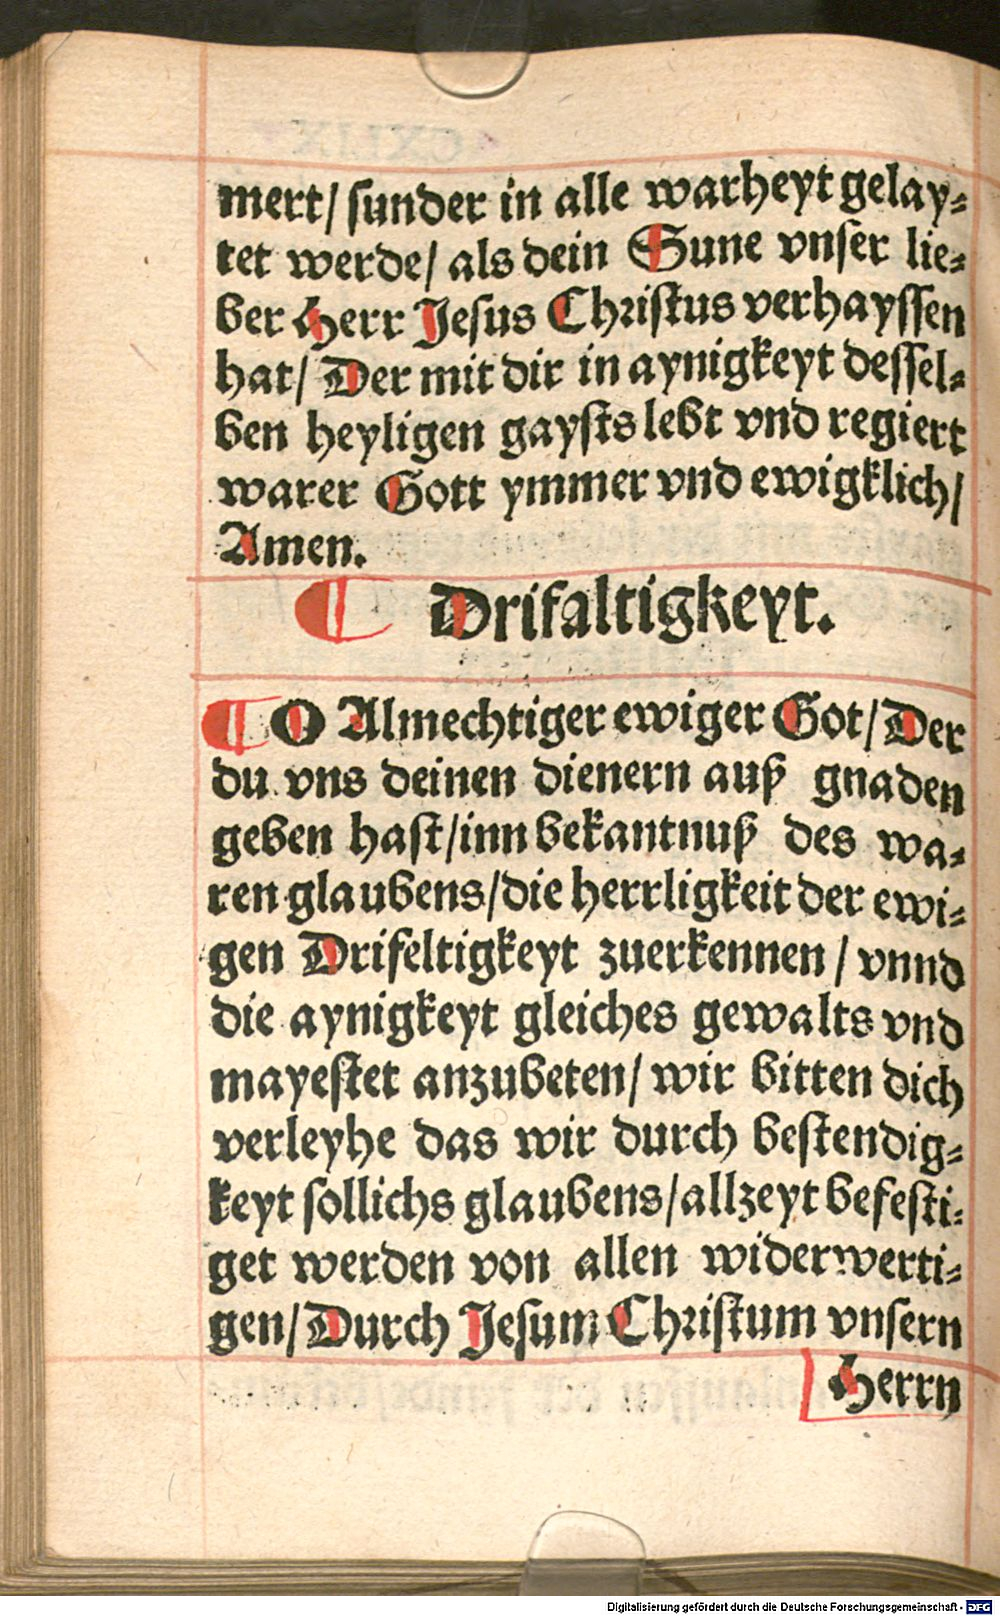 mert/ sunder in alle warheyt gelay⸗
tet werde/ als dein Sune vnser lie⸗
ber Herr Jesus Christus verhayssen
hat/ Der mit dir in aynigkeyt dessel⸗
ben heyligen gaysts lebt vnd regiert
warer Gott ymmer vnd ewigklich/
Amen.
¶ Drifaltigkeyt.
¶ O Almechtiger ewiger Got/ Der
du vns deinen dienern auß gnaden
geben hast/ inn bekantnuß des wa⸗
ren glaubens/ die herrligkeit der ewi⸗
gen Drifeltigkeyt zuerkennen/ vnnd
die aynigkeyt gleiches gewalts vnd
mayestet anzubeten/ wir bitten dich
verleyhe das wir durch bestendig⸗
keyt sollichs glaubens/ allzeyt befesti⸗
get werden von allen widerwerti⸗
gen/ Durch Jesum Christum vnsern
Herrn
Digitalisierung gefördert durch die Deutsche Forschungsgemeinschaft - DFG